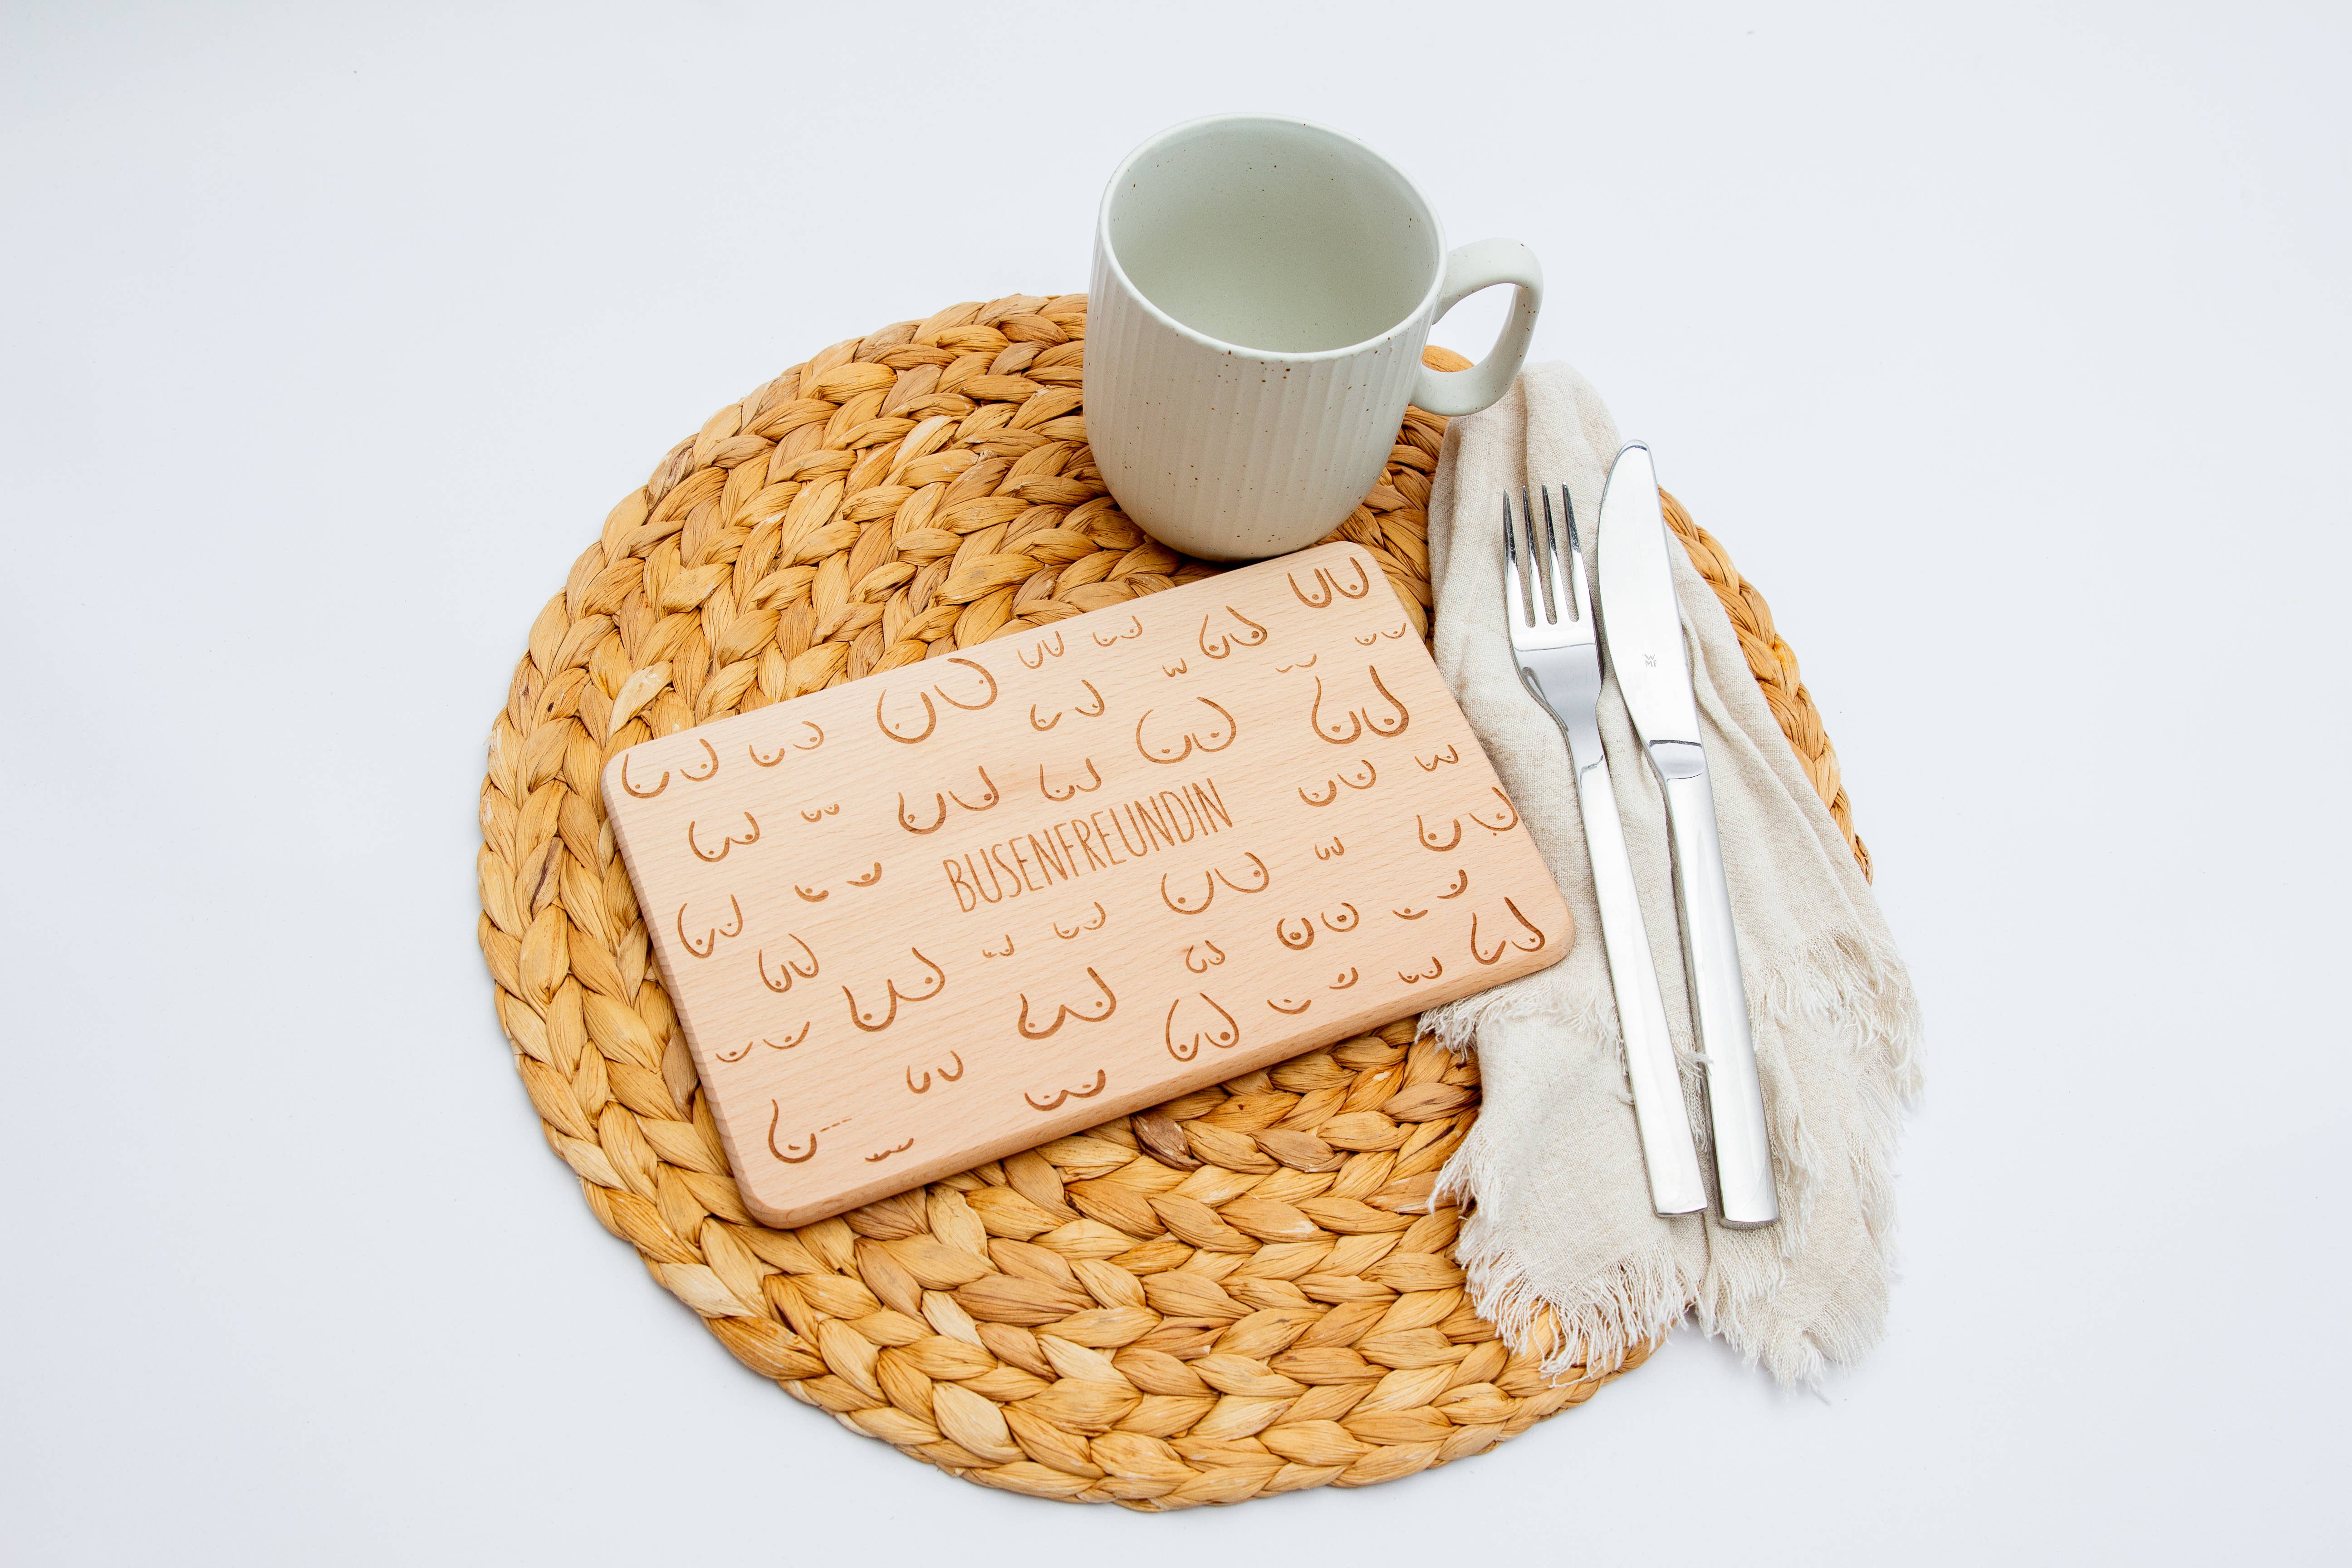 BUSENFREUNDIN
WMF